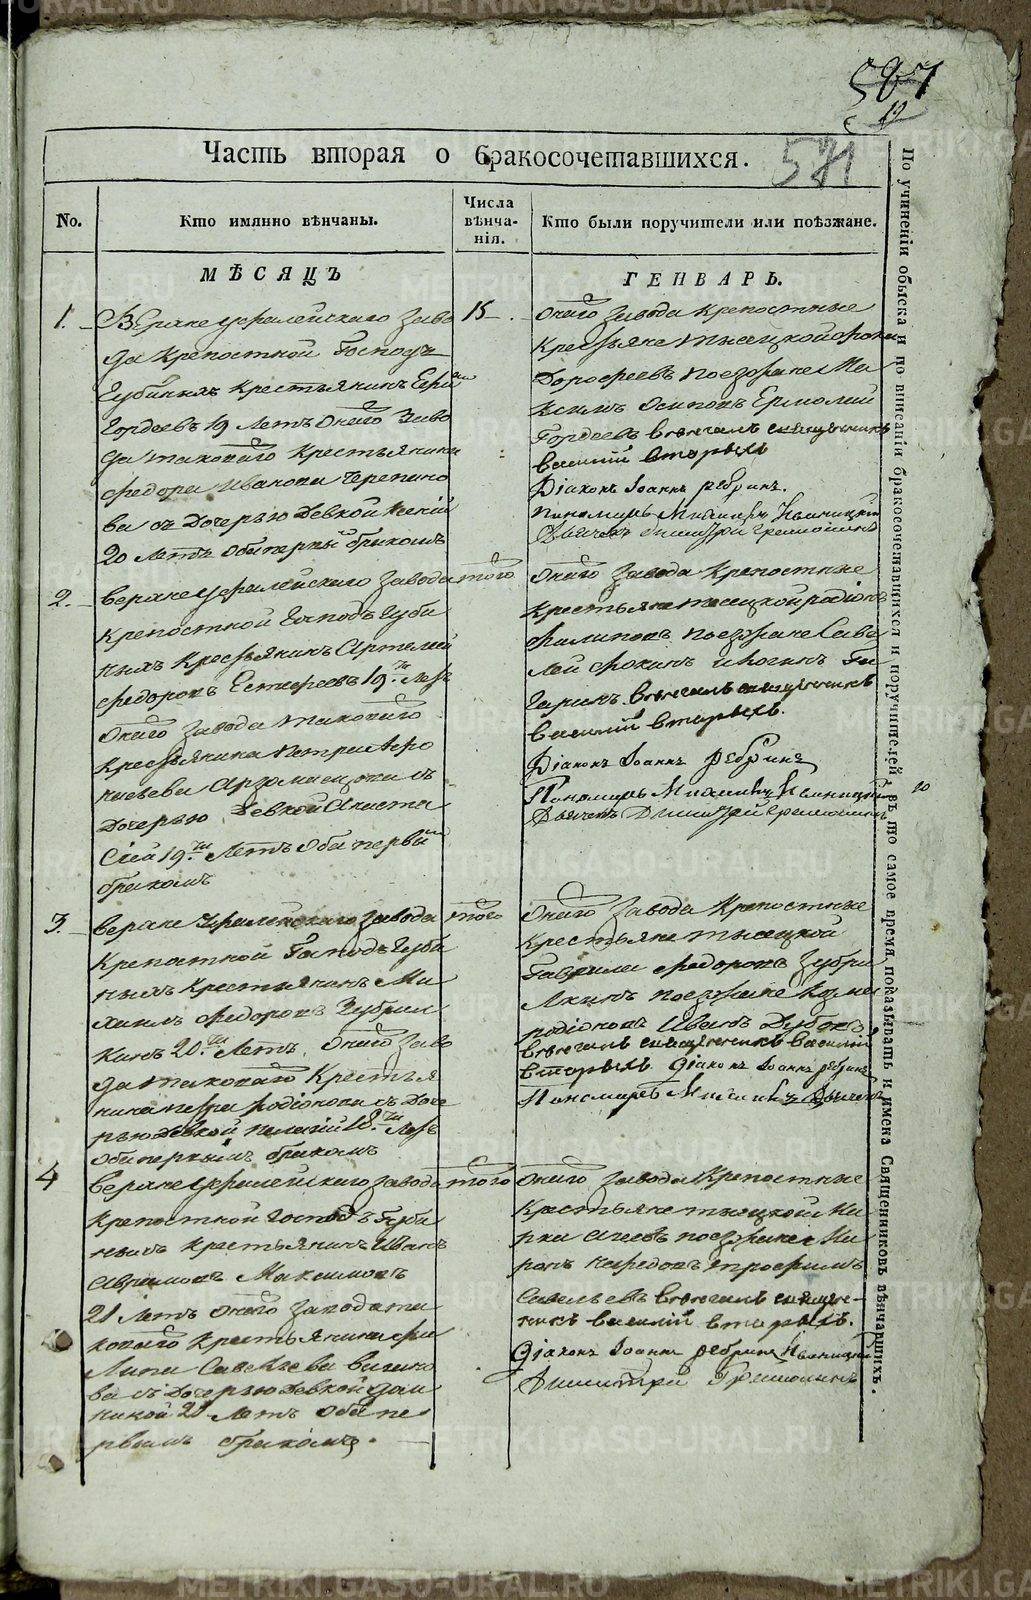 587
19
571
Часть вторая о бракосочетавшихся.
No.
Кто имянно вѣнчаны.
Числа вѣнча-
нія.
Кто были поручители или поѣзжане.
МѢСЯЦЪ
ГЕНВАРЬ.
1.
Верхне уфалейскаго заво
да крепостной Господъ
Губиныхъ крестьянинъ
Гордеевъ 19 летъ онаго заво
да таковаго крестьянина
федора Иванова
ва съ дочерью девкой Ксенiей
20 летъ оба первымъ бракомъ
15
онаго завода крепостные
крестьяне тысяцкой
Дорофеевъ поезжане Ма
ксимъ Осиповъ Ермолай
Гордеевъ венчалъ священникъ
василiй вторыхъ
Дiаконъ Iоаннъ ребринъ.
пономарь Михаилъ
Дьячекъ Димитрiй
2.
верхне уфалейскаго завода
крепостной Господъ Губи
ныхъ крестьянинъ Артемей
федоровъ Естефеевъ 19.ти летъ
онаго завода таковаго
крестьянина петра
съ
дочерью девкой Анаста
сiей 19.ти летъ оба первымъ
бракомъ
того
онаго завода крепостные
крестьяне тысецкой родiонъ
Филиповъ поезжане Саве
лей фокинъ
венчалъ священникъ
василiй вторыхъ.
Дiаконъ Iоаннъ ребринъ
Пономарь Михаилъ
Дьячекъ Димитрiй
3.
верхне Уфалейскаго завода
крепостной Господъ Губи
ныхъ крестьянинъ Ми
хаилъ федоровъ Зубрил
кинъ 20.ти летъ онаго заво
да таковаго крестья
нина петра родiонова съ доче
рью девкой пелагiй 18.ти летъ
оба первымъ бракомъ
того
онаго завода крепостные
крестьяне тысецкой
Гаврила федоровъ Зубри
лкинъ поезжане Козма
родiоновъ Иванъ
венчалъ священникъ василiй
вторыхъ Дiаконъ Iоаннъ ребринъ
Пономарь Михаилъ
4
верхне уфалейскаго завода
крепостной Господъ Губи
ныхъ крестьянинъ Иванъ
Авраамовъ Максимовъ
21 летъ онаго завода та
коваго крестьянина фи
липа Савельева
ва съ дочерью девкой дом
никой 21 летъ оба пе
рвымъ бракомъ.
того
онаго завода крепостные
крестьяне тысецкой Ки
поезжане Ми
ронъ трофимъ
Савельевъ венчалъ священ-
никъ василiй вторыхъ.
Дiаконъ Iоаннъ ребринъ
Димитрiй
По учиненіи обыска и по вписаніи бракосочетавшихся и поручителей, въ то самое время, показывать и имена Священниковъ вѣнчавшихъ.
METRIKI.GASO-URAL.RU